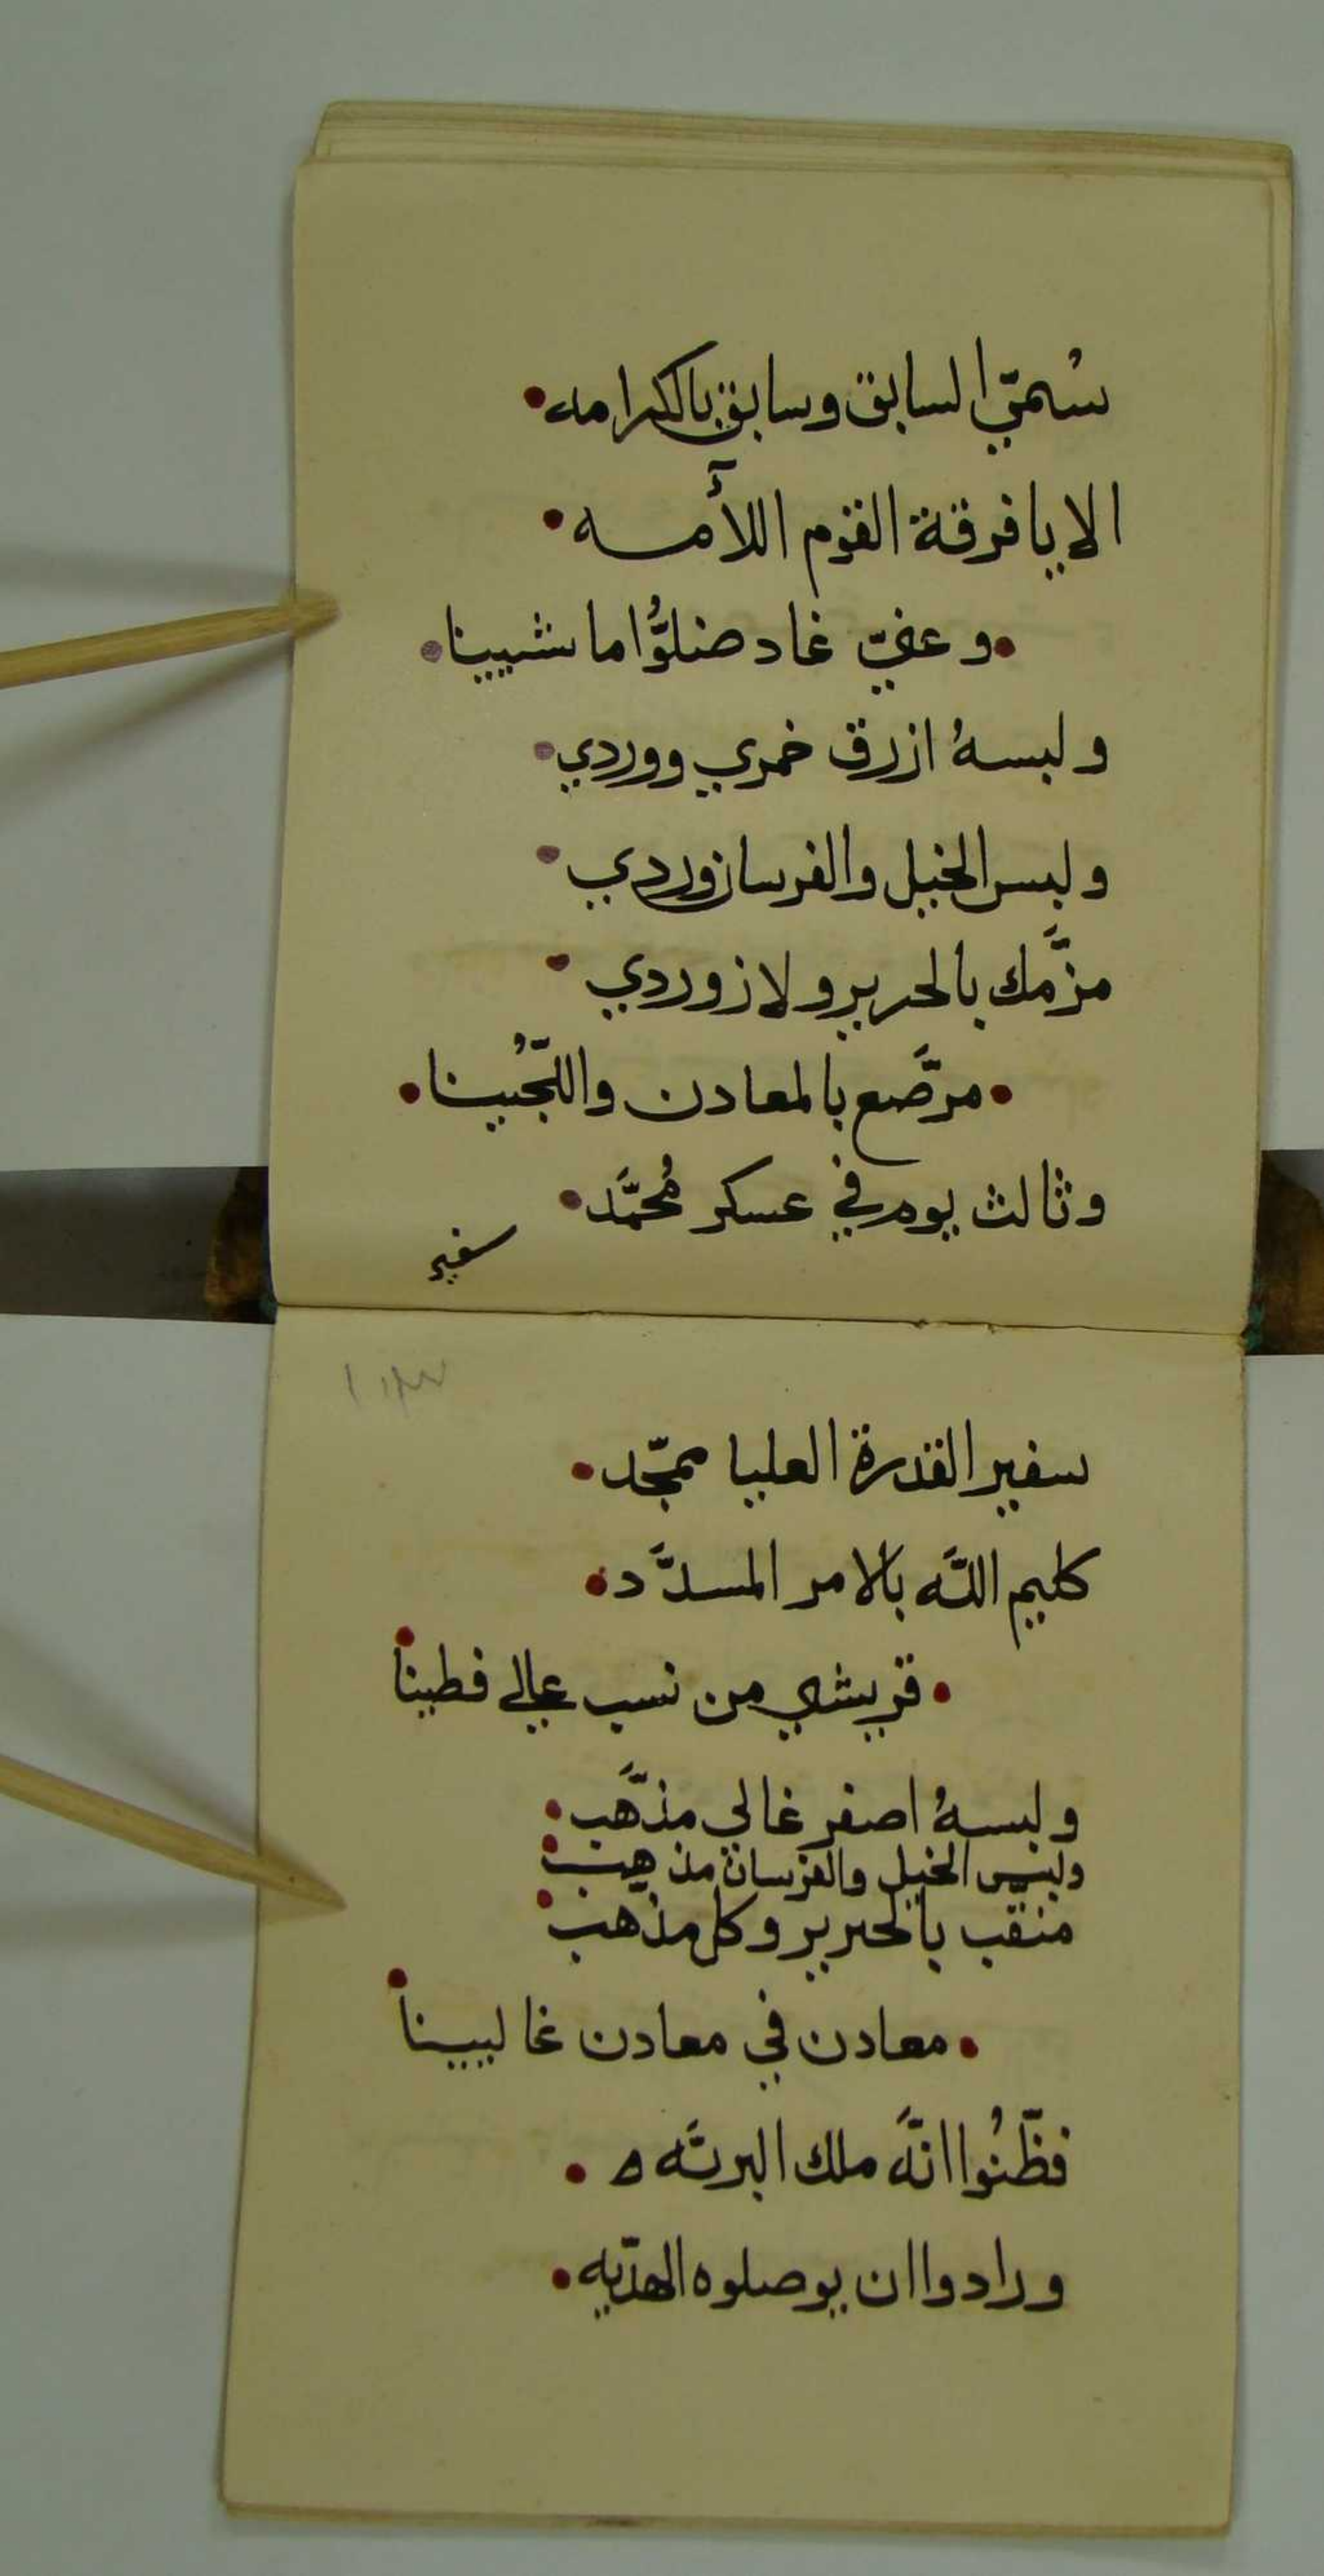 سُميّ السابق وسابق بالكرامه•
الا يا فرقة القوم اللأمه•
•و عفيّ غاد ضلوُّا ما شيينا•
ولبسهُ ازرق خمري ووردي•
ولبس الخيل والفرسان وردي•
مزَّمك بالحرير ولازوردي•
•مرصَّع بالمعادن واللّجُيينا•
وثالث يوم في عسكر مُحمَّد•
سفير
سفير القدرة العليا ممجّد•
كليم اللَّه بالامر المسدَّد•
•قريشي من نسب عالي فطينا•
ولبسهُ اصفر غالي مذَّهب•
ولبس الخيل والفرسان مذهب•
منقّب بالحرير وكل مذهب•
•معادن في معادن غاليينا•
فظّنُوا انهَّ ملك البريَّه ه•
ورادوا ان يوصلوه الهدّيه•